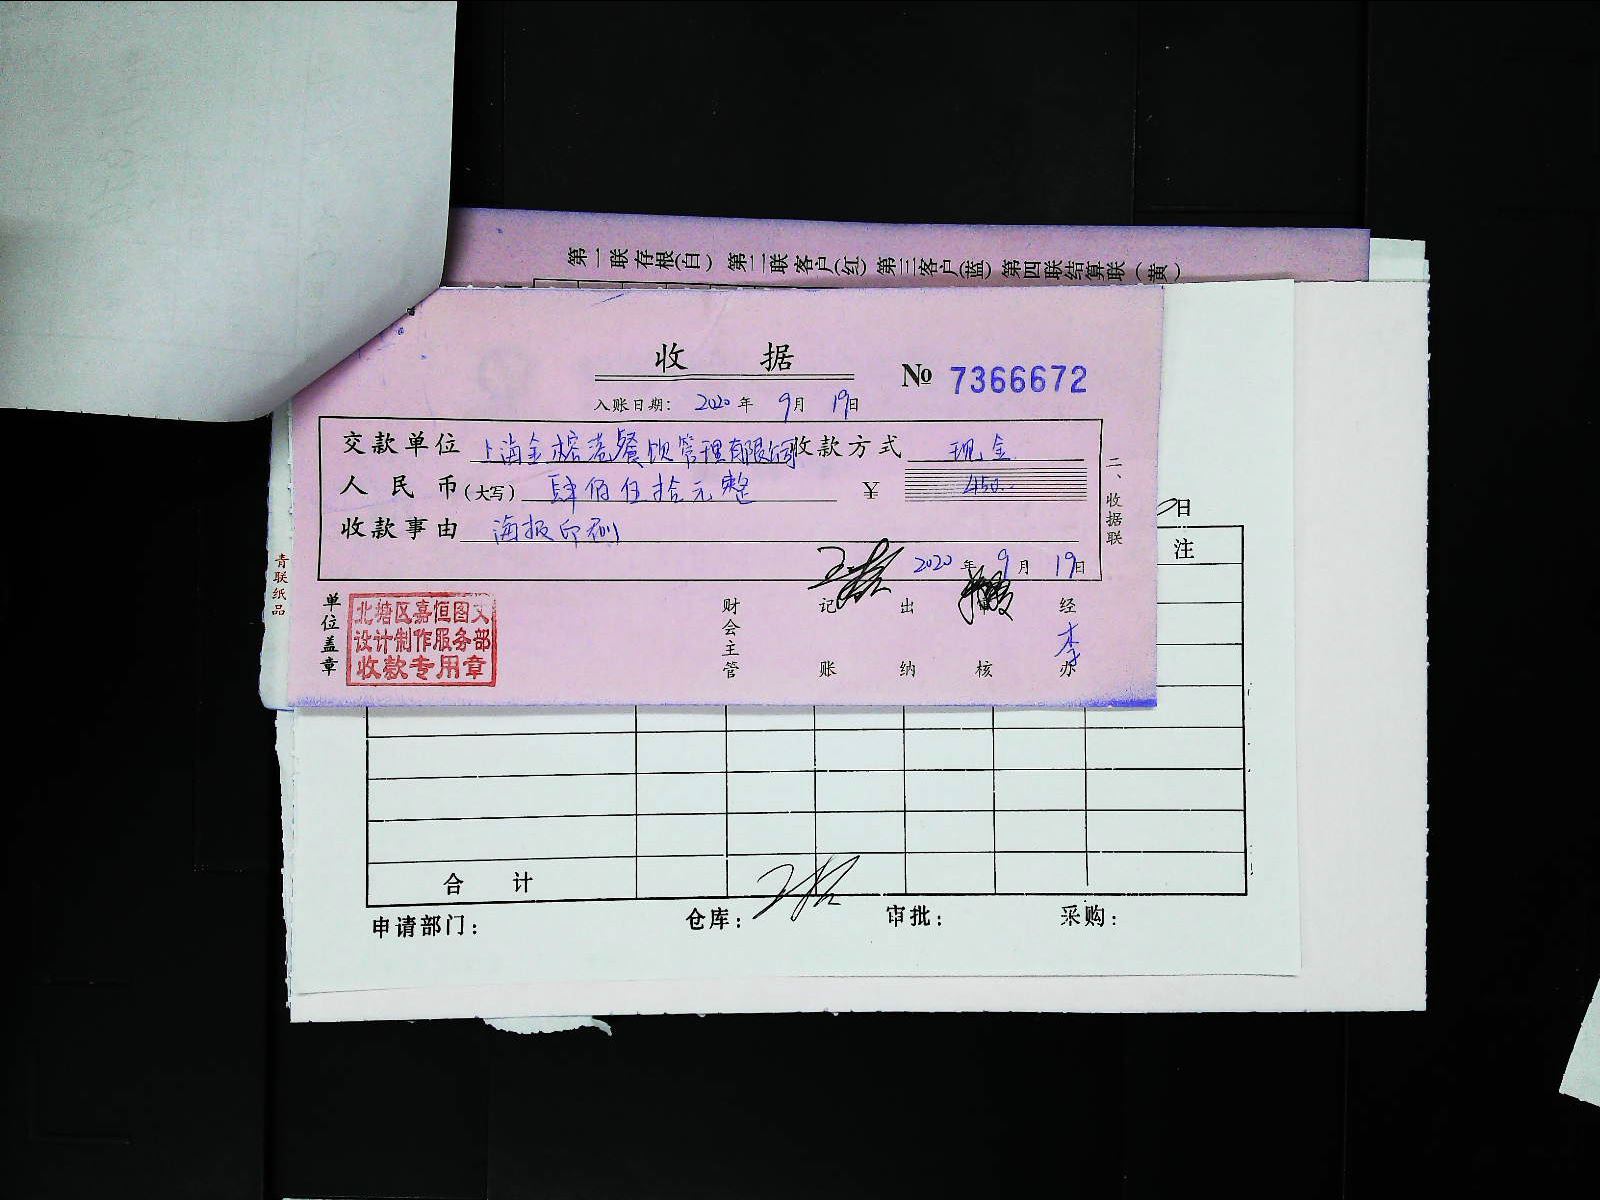 第一联存根(白) 第二联客户(红) 第三客户(蓝) 第四联结算联(黄)
收 据
№ 7366672
入账日期: 2020 年 9 月 19 日
交款单位 上海金榕港餐饮管理有限公司 收款方式 现金
人民币(大写) 肆佰伍拾元整 ¥ 450.-
收款事由 海报印刷
2020 年 9 月 19 日
二、收据联
青联纸品
单位盖章
北塘区嘉恒图文
设计制作服务部
收款专用章
财会主管 记账 出纳 审核 经办 李
日
注
合 计
申请部门: 仓库: 审批: 采购: